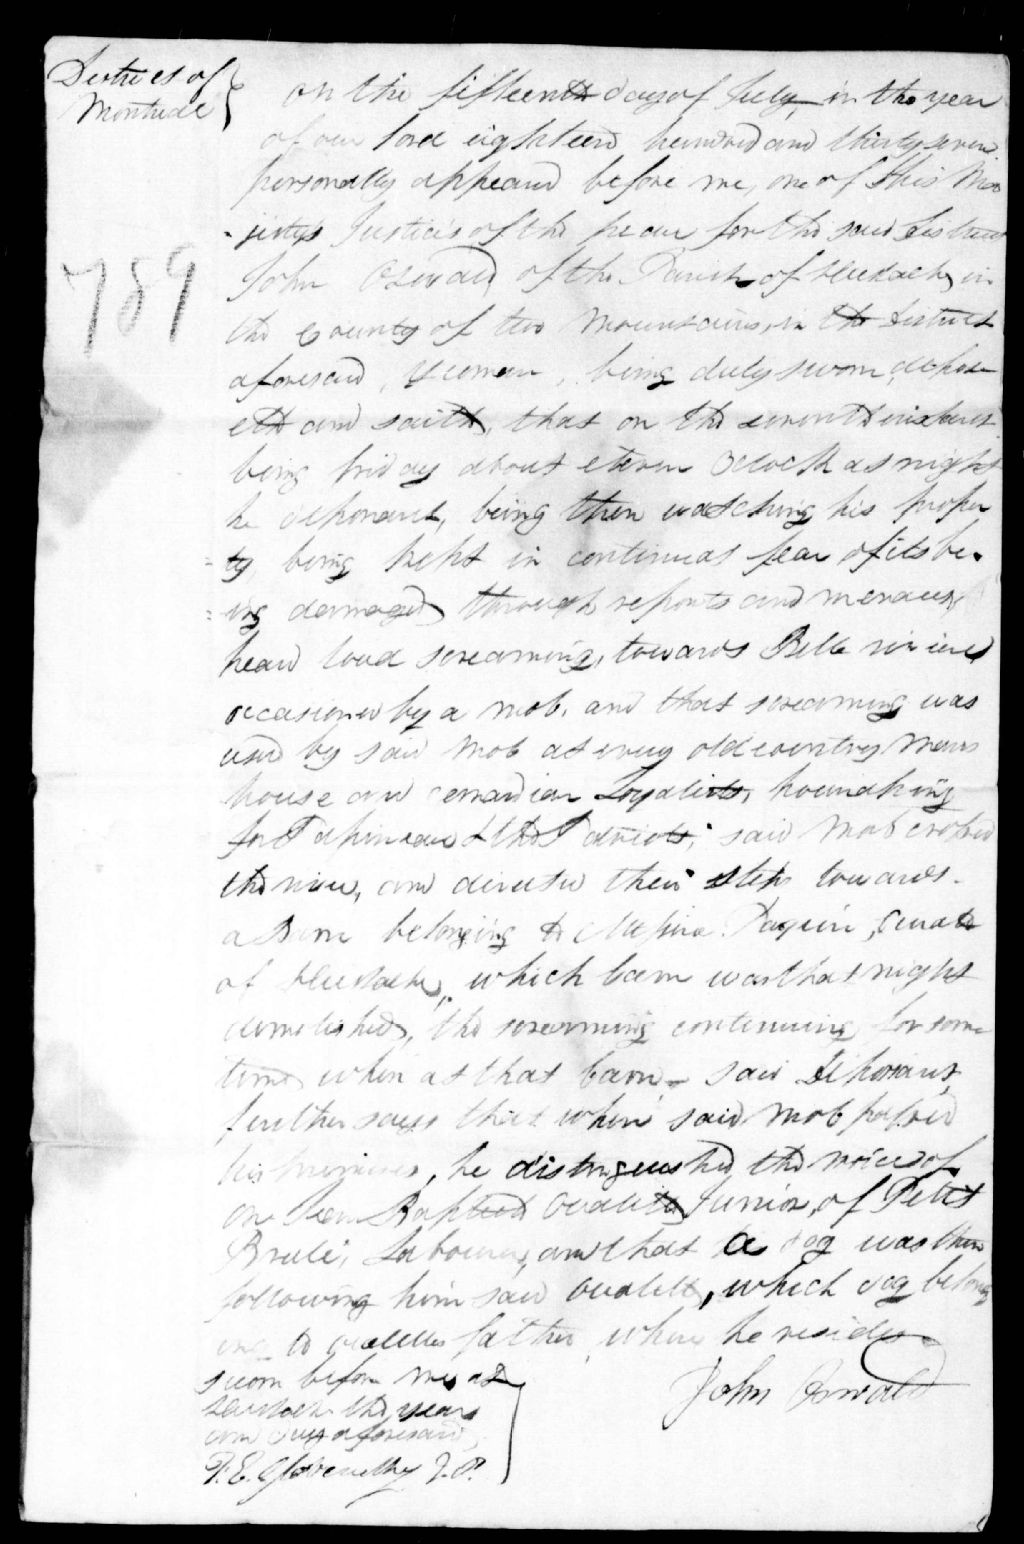 District of
Montreal
On the fifteenth day of July, in the year
of our lord eighteen hundred and thirty seven
personally appeared before me, one of His Ma
-jesty's Justices of the peace for the said District
789
John Oswald of the Parish of St Eustache, in
the County of two Mountains, in the District
aforesaid, Yeoman, being duly sworn, depos
eth and saith, that on the seventh instant
being friday about eleven Oclock at night
he deponent, being then watching his proper
=ty, being kept in continual fear of its be
=ing damaged through reports and menaces,
heard loud screaming, towards Belle riviere
occasioned by a mob, and that screaming was
used by said mob at every old country mans
house and canadian Loyalists,
for Papineau & the Patriots; said mob crossed
the river, and directed their steps towards
a Barn belonging to Messire Paquin, Curate
of St Eustache, which barn was that night
demolished, the screaming continuing for some
time when at that barn - said Deponent
further says that when said mob passed
his premises, he distinguished the voice of
one Jean Baptiste Ouellette Junior, of Petit
Brulé, Labourer, and that a dog was then
following him said Ouellett, which dog belong
ing to Ouelletts father, where he resides
John Oswald
Sworn before me at
St Eustache the year
and day aforesaid,
F. E. Globensky J. P.